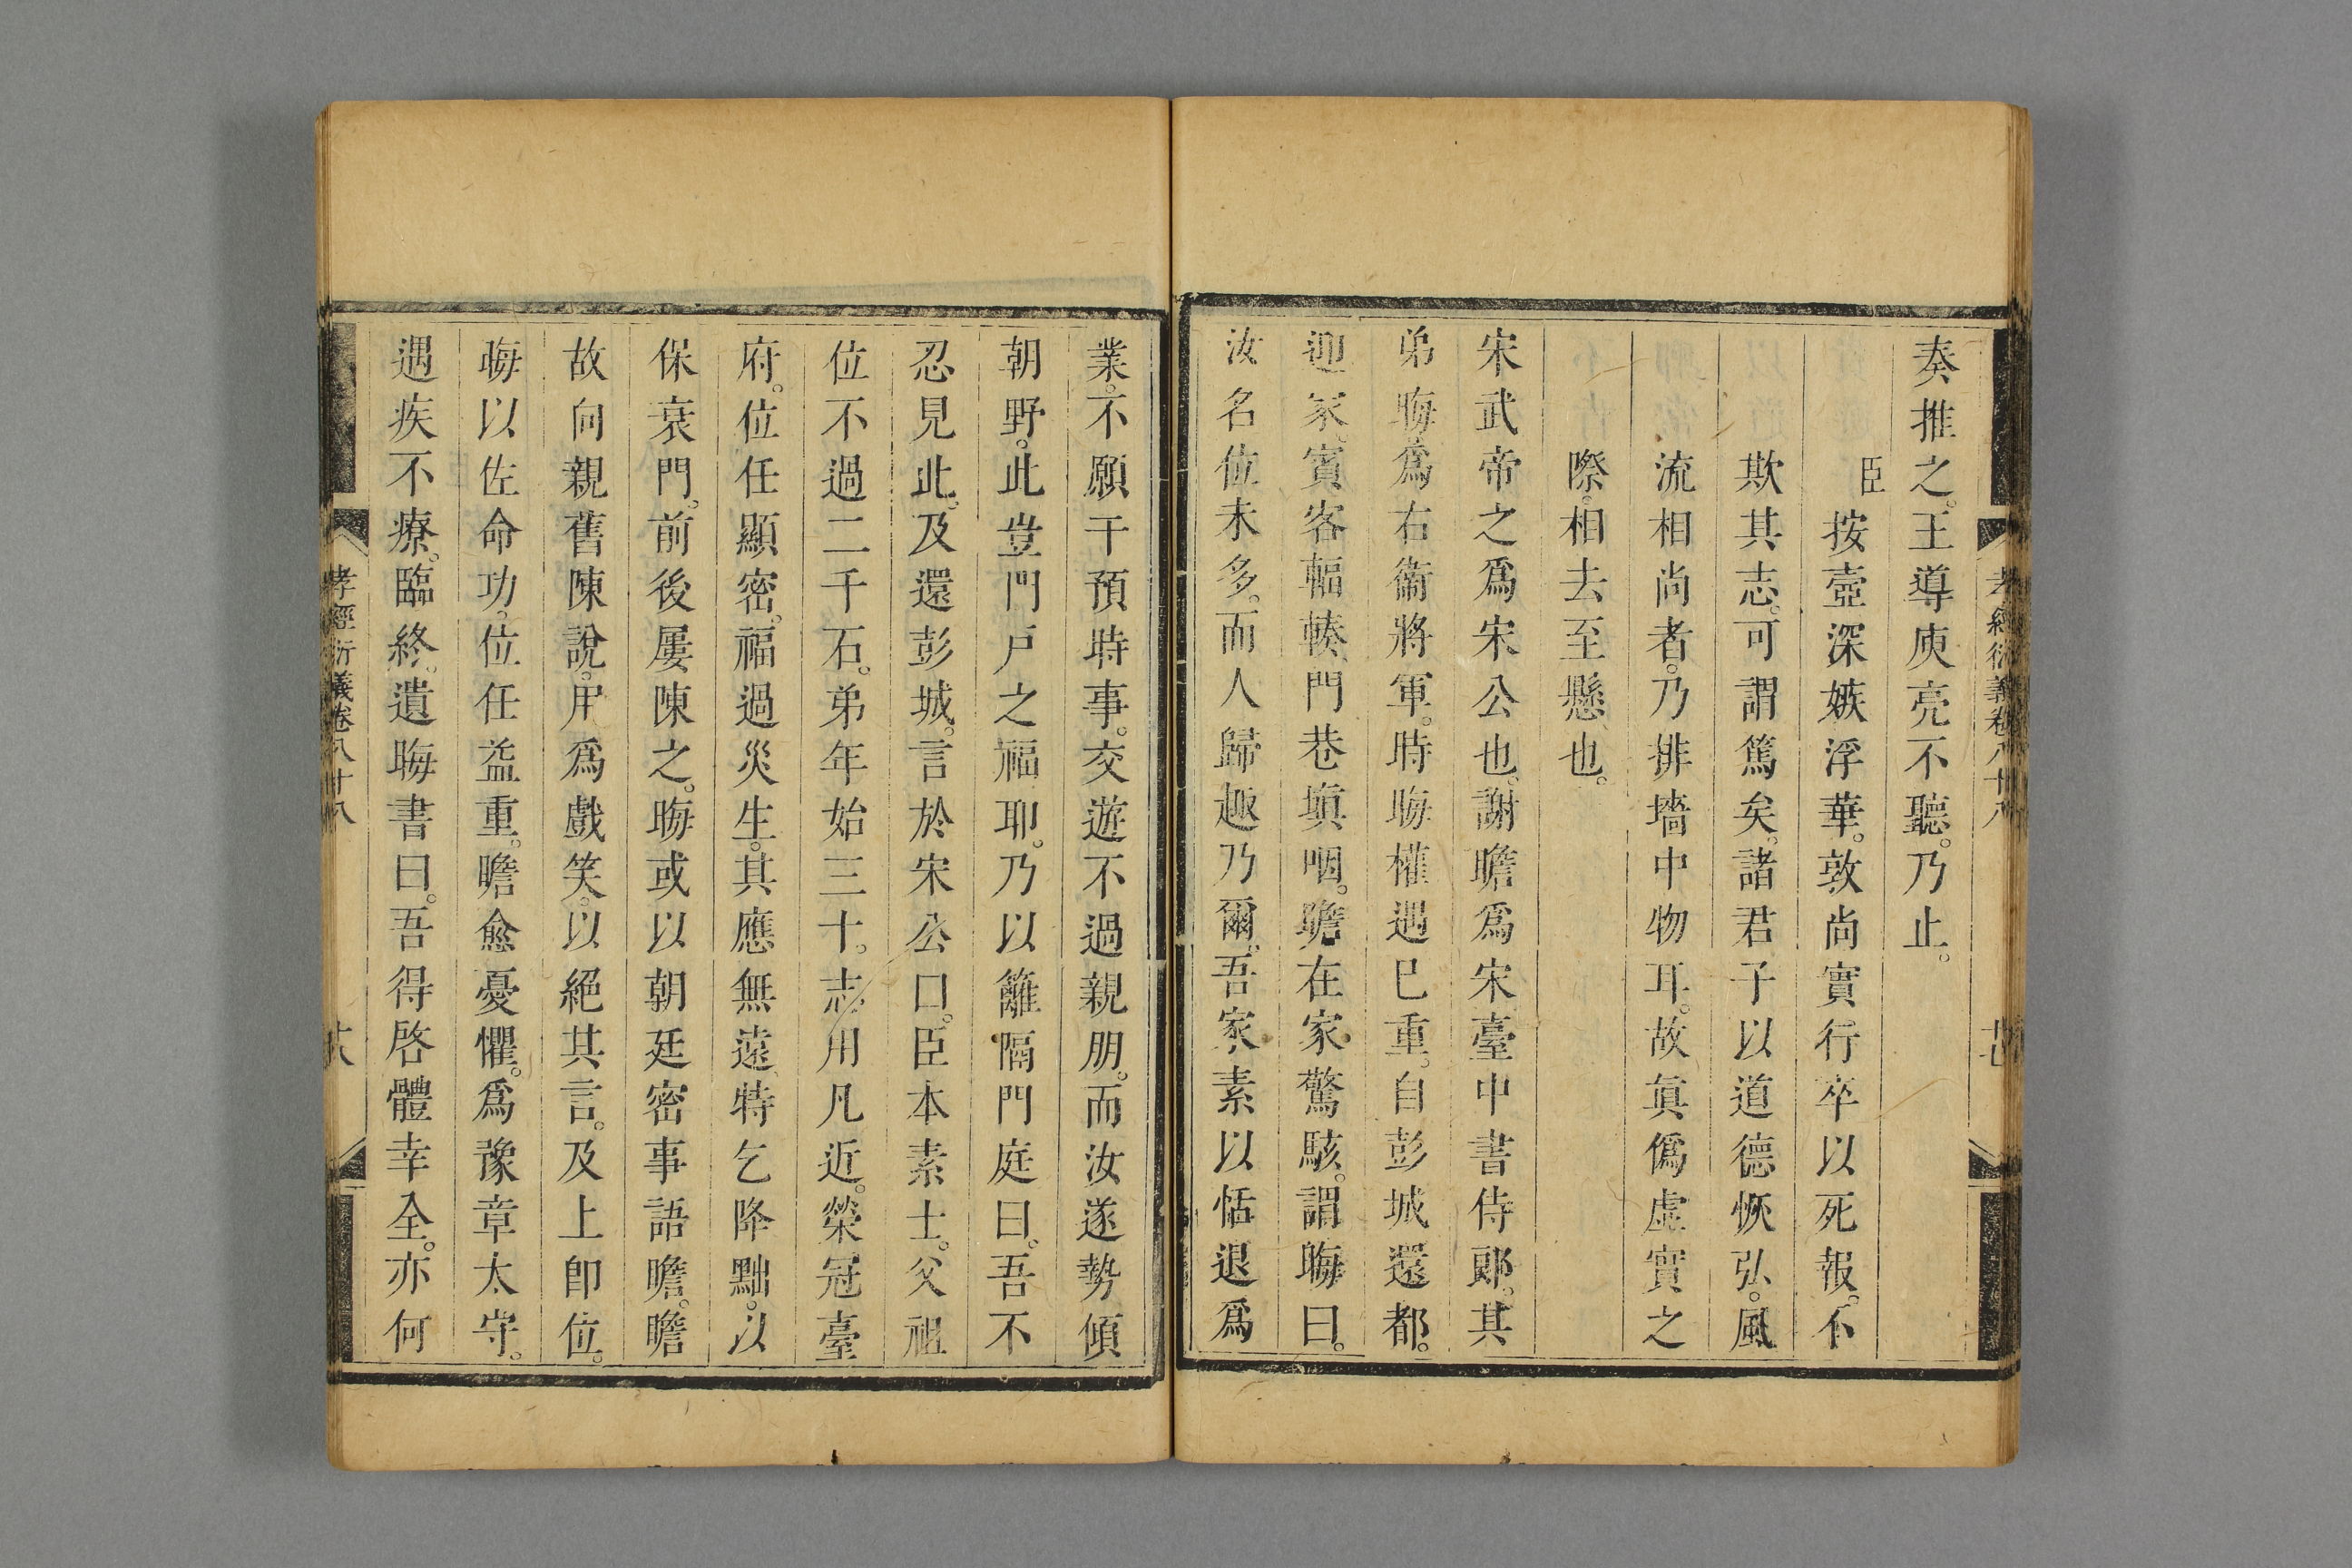 孝經衍義卷八十八
奏推之。王導庾亮不聽。乃止。
臣按壼深嫉浮華。敦尚實行卒以死報。不
欺其志。可謂篤矣。諸君子以道德恢弘。風
流相尚者。乃排墻中物耳。故眞僞虛實之
際。相去至懸也。
宋武帝之爲宋公也。謝瞻爲宋臺中書侍郞。其
弟晦爲右衞將軍。時晦權遇巳重。自彭城還都。
迎家。賓客輻輳。門巷塡咽。瞻在家驚駭。謂晦曰。
汝名位未多。而人歸趣乃爾。吾家素以恬退爲
業。不願干預時事。交遊不過親朋。而汝遂勢傾
朝野。此豈門戸之福耶。乃以籬隔門庭曰。吾不
忍見此。及還彭城。言於宋公曰。臣本素士。父祖
位不過二千石。弟年始三十。志用凡近。榮冠臺
府。位任顯密。福過災生。其應無遠。特乞降黜。以
保衰門。前後屢陳之。晦或以朝廷密事語瞻。瞻
故向親舊陳說。用爲戲笑。以絕其言。及上卽位。
晦以佐命功。位任益重。瞻愈憂懼。爲豫章太守。
遇疾不療。臨終。遺晦書曰。吾得啓體幸全。亦何
孝經衍義卷八十八